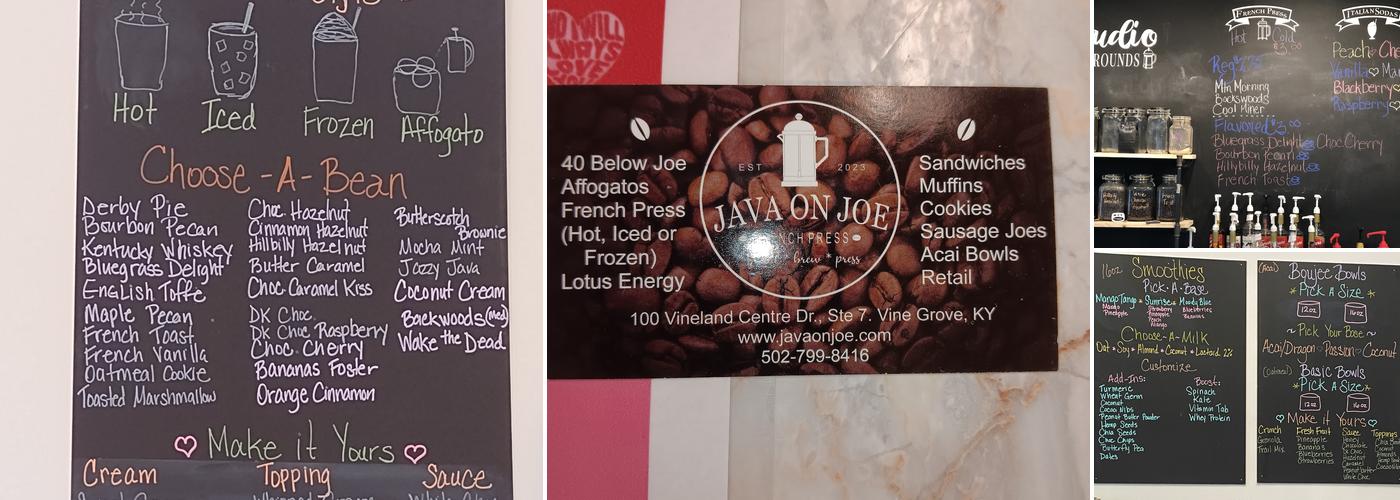 Hot
Iced
Frozen
Affogato
Choose-A-Bean
Derby Pie
Bourbon Pecan
Kentucky Whiskey
Bluegrass Delight
English Toffe
Maple Pecan
French Toast
French Vanilla
Oatmeal Cookie
Toasted Marshmallow
Choc. Hazelnut
Cinnamon Hazelnut
Hillbilly Hazelnut
Butter Caramel
Choc Caramel Kiss
DK Choc
DK Choc Raspberry
Choc. Cherry
Bananas Foster
Orange Cinnamon
Butterscotch
Brownie
Mocha Mint
Jazzy Java
Coconut Cream
Backwoods (med)
Wake the Dead
Make it Yours
Cream
Topping
Sauce
40 Below Joe
Affogatos
French Press
(Hot, Iced or
Frozen)
Lotus Energy
EST 2023
JAVA ON JOE
brew * press
Sandwiches
Muffins
Cookies
Sausage Joes
Acai Bowls
Retail
100 Vineland Centre Dr., Ste 7. Vine Grove, KY
www.javaonjoe.com
502-799-8416
FRENCH PRESS
Hot Cold
ITALIAN SODAS
udio
ROUNDS
Min Morning
Backswoods
Coal Miner
Flavored
Bluegrass Delight
Choc Cherry
Bourbon Pecan
Hillybilly Hazelnut
French Toast
Peach
Vanilla
Blackberry
Raspberry
16oz
Smoothies
Pick-A-Base
Mango Tango * Sunrise * Moody Blue
Mango
Pineapple
Strawberry
Pineapple
Peach
Mango
Blueberries
Bananas
Choose-A-Milk
Oat * Soy * Almond * Coconut * Lactaid 2%
Customize
Add-Ins:
Turmeric
Wheat Germ
Coconut
Cacao Nibs
Peanut Butter Powder
Hemp Seeds
Chia Seeds
Choc Chips
Butterfly Pea
Dates
Boost:
Spinach
Kale
Vitamin Tab
Whey Protein
(Acai)
Boujee Bowls
* Pick A Size *
12oz
16oz
~ Pick Your Base ~
Acai/Dragon ~ Passion ~ Coconut
(Oatmeal)
Basic Bowls
* Pick A Size *
12oz
16oz
Make it Yours
Crunch
Granola
Trail Mix
Fresh Fruit
Pineapple
Bananas
Blueberries
Strawberries
Sauce
Honey
Chocolate
Dk Choc
Hazelnut
Caramel
Peanut butter
White Choc
Toppings
Coconut
Almonds